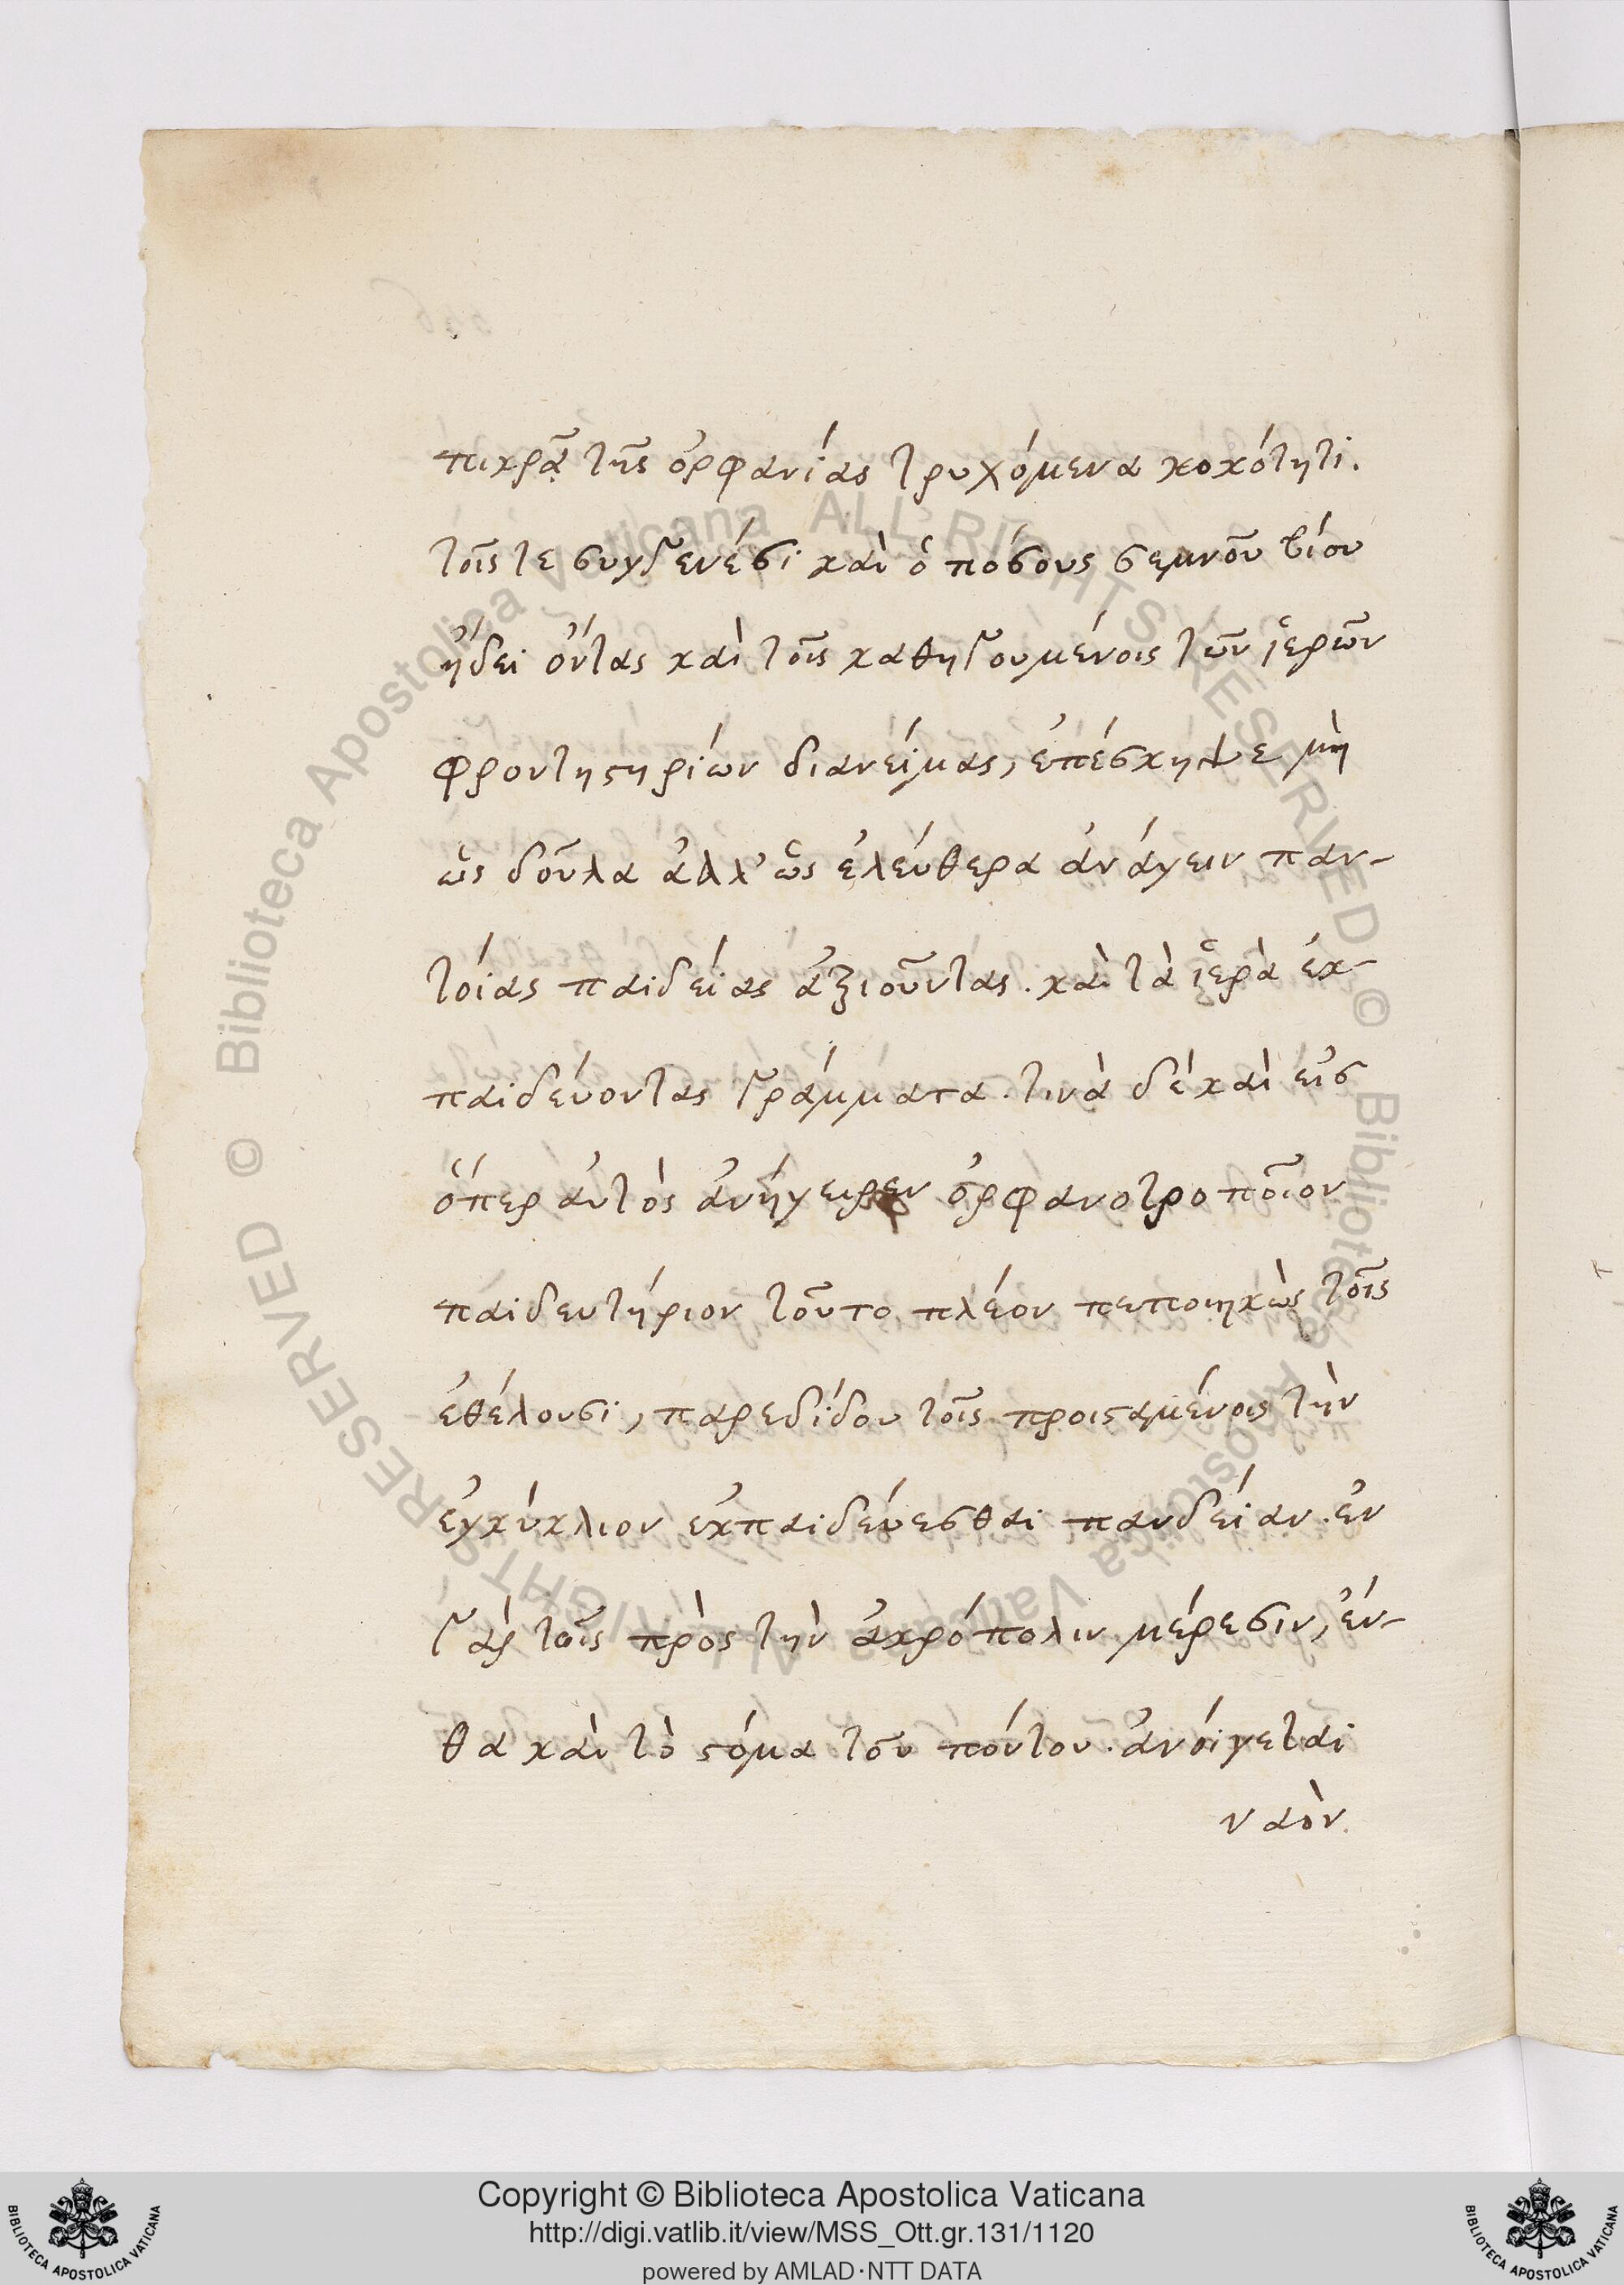 πικρᾷ τῆς ὀρφανίας τρυχόμενα κοκότητι.
τοῖς τε συγγενέσι καὶ ὁπόσους σεμνοῦ βίου
ᾔδει ὄντας καὶ τοῖς καθηγουμένοις τῶν ἱερῶν
φροντηστηρίων διανείμας, ἐπέσκηψε μὴ
ὡς δοῦλα ἀλλ' ὡς ἐλεύθερα ἀνάγειν παν-
τοίας παιδείας ἀξιοῦντας. καὶ τὰ ἱερὰ ἐκ-
παιδεύοντας γράμματα. τινὰ δὲ καὶ εἰς
ὅπερ αὐτὸς ἀνήγειρεν ὀρφανοτροποῖον
παιδευτήριον τοῦτο πλέον πεποιηκὼς τοῖς
ἐθέλουσι, παρεδίδου τοῖς προισταμένοις τὴν
ἐγκύκλιον ἐκπαιδεύεσθαι πανδείαν. ἐν
γὰρ τοῖς πρὸς τὴν ἀκρόπολιν μέρεσιν, ἔν-
θα καὶ τὸ στόμα τοῦ πόντου. ἀνοίγεται
ναὸν
© Biblioteca Apostolica Vaticana ALL RIGHTS RESERVED © Biblioteca Apostolica Vaticana ALL RIGHTS RESERVED
Copyright © Biblioteca Apostolica Vaticana
http://digi.vatlib.it/view/MSS_Ott.gr.131/1120
powered by AMLAD·NTT DATA
BIBLIOTECA APOSTOLICA VATICANA
BIBLIOTECA APOSTOLICA VATICANA